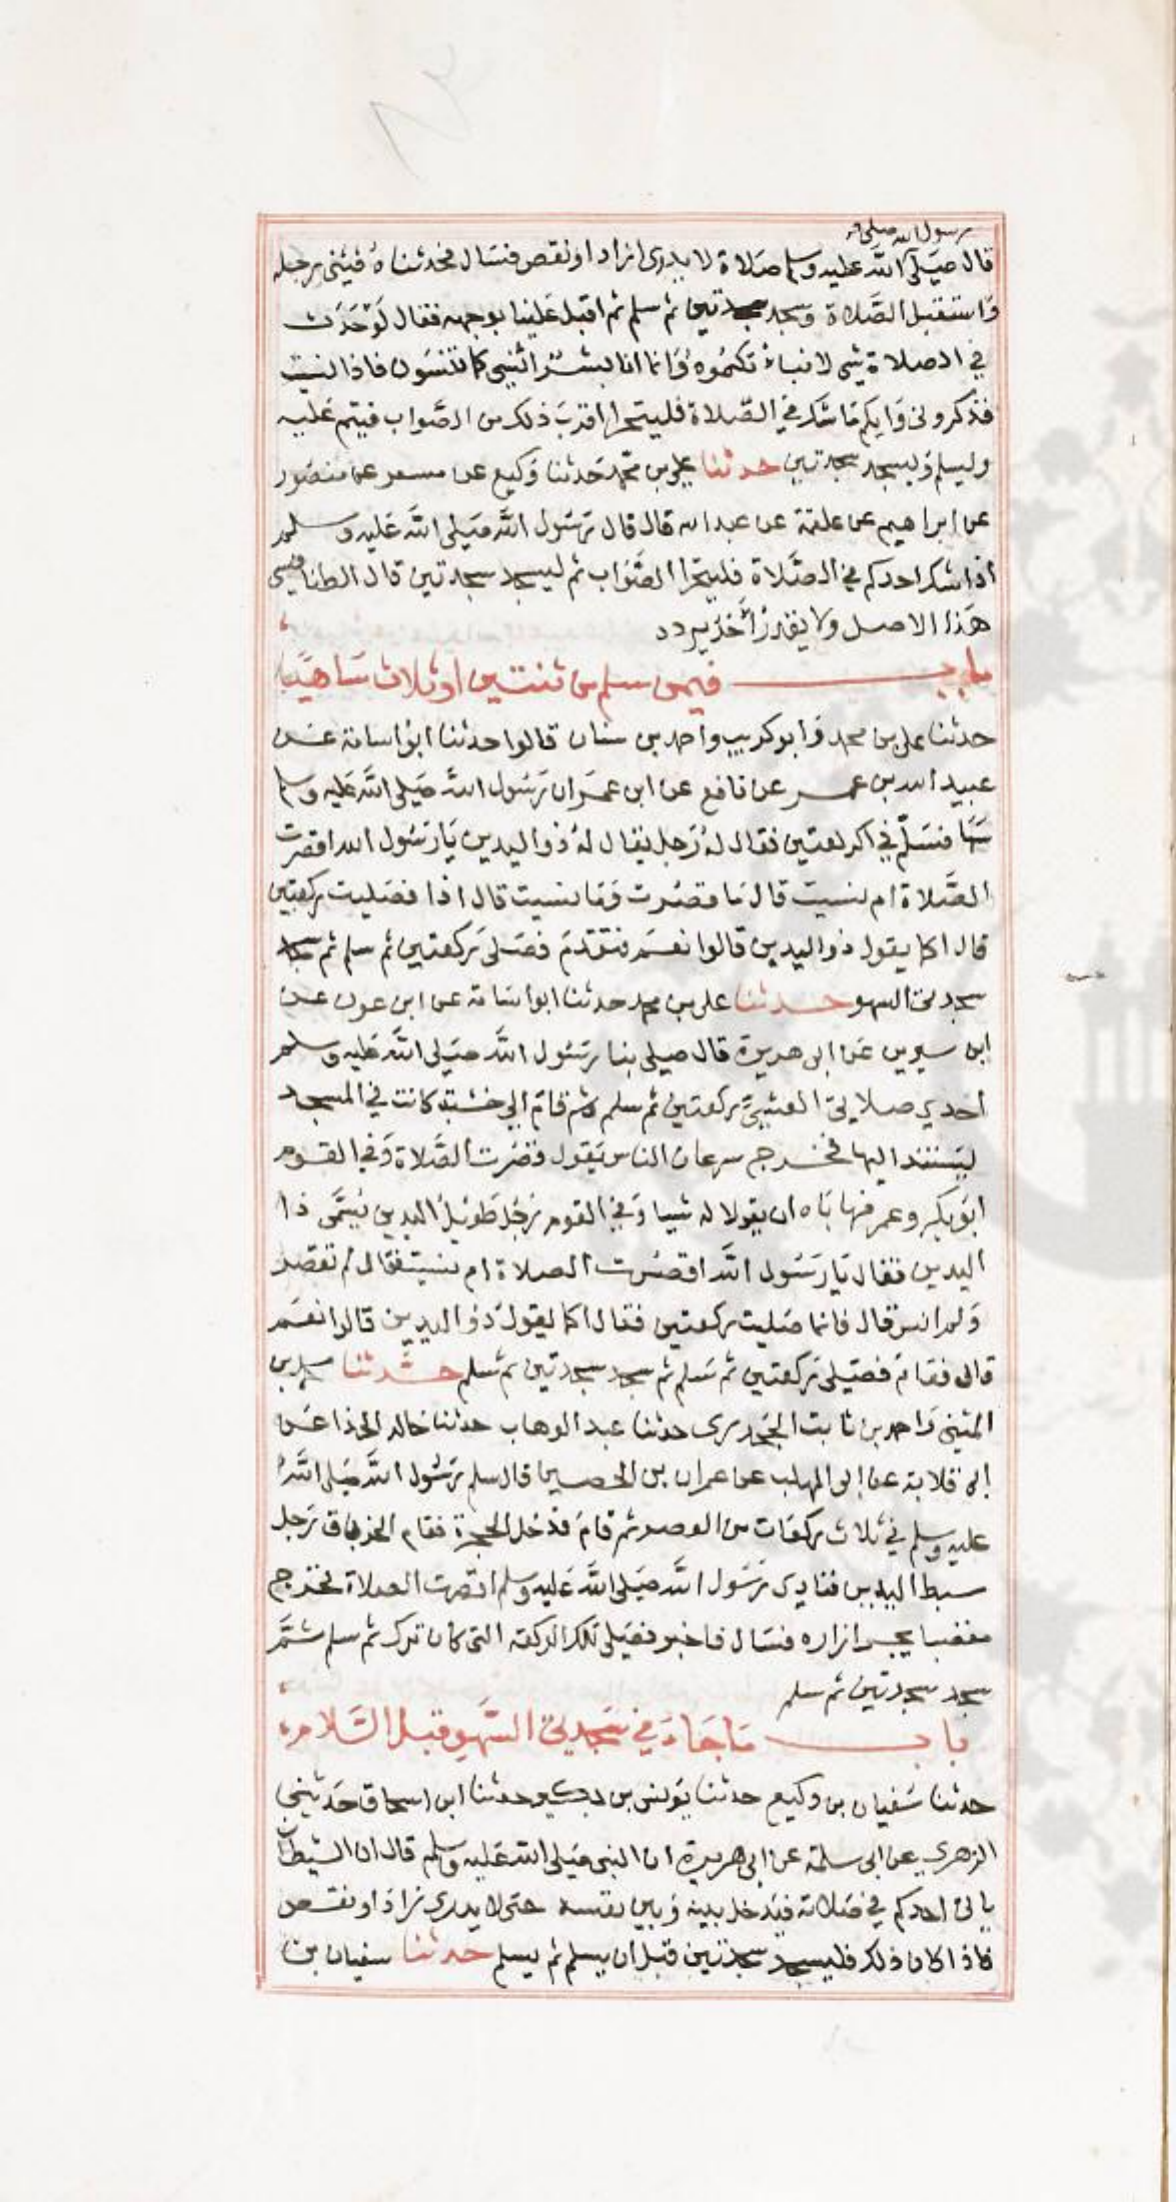 رسول الله صلى
قال صلى الله عليه وسلم صلاة لا يدرى ازاد او نقص فسال فحدثناه فيثنى رجله
واستقبل الصلاة وسجد سجدتين ثم سلم ثم اقبل علينا بوجهه فقال لو حدث
في الصلاة شى لانباء تكموه وانما انا بشر انسى كما تنسون فاذا نسيت
فذكرونى وايكم ما شك في الصلاة فليتحرا اقرب ذلك من الصواب فيتم عليه
وليسلم وليسجد سجدتين حدثنا على بن محمد حدثنا وكيع عن مسعر عن منصور
عن ابراهيم عن علقمة عن عبد الله قال قال رسول الله صلى الله عليه وسلم
اذا شك احدكم في الصلاة فليتحرا الصواب ثم ليسجد سجدتين قال الطنافسى
هذا الاصل ولا يقدر احد يرده
باب فيمن سلم من ثنتين او ثلاث ساهيا
حدثنا على بن محمد وابو كريب واحمد بن سنان قالوا حدثنا ابو اسامة عن
عبيد الله بن عمر عن نافع عن ابن عمر ان رسول الله صلى الله عليه وسلم
سها فسلم في الركعتين فقال له رجل يقال له ذو اليدين يا رسول الله اقصرت
الصلاة ام نسيت قال ما قصرت وما نسيت قال اذا فصليت ركعتين
قال اكما يقول ذو اليدين قالوا نعم فتقدم فصلى ركعتين ثم سلم ثم سجد
سجدتى السهو حدثنا على بن محمد حدثنا ابو اسامة عن ابن عون عن
ابن سيرين عن ابى هريرة قال صلى بنا رسول الله صلى الله عليه وسلم
احدي صلاتى العشي ركعتين ثم سلم ثم قام الي خشبة كانت في المسجد
ليستند اليها فخرج سرعان الناس يقول قصرت الصلاة وفي القوم
ابو بكر وعمر فهاباه ان يقولا له شيا وفي القوم رجل طويل اليدين يسمى ذا
اليدين فقال يا رسول الله اقصرت الصلاة ام نسيت فقال لم تقصر
ولم انس قال فانما صليت ركعتين فقال اكما يقول ذو اليدين قالوا نعم
قال فقام فصلى ركعتين ثم سلم ثم سجد سجدتين ثم سلم حدثنا محمد بن
المثنى واحمد بن ثابت الجحدرى حدثنا عبد الوهاب حدثنا خالد الحذا عن
ابى قلابة عن ابى المهلب عن عمران بن الحصين قال سلم رسول الله صلى الله
عليه وسلم في ثلاث ركعات من العصر ثم قام فدخل الحجرة فقام الخرباق رجل
سبط اليدين فنادى رسول الله صلى الله عليه وسلم اقصرت الصلاة فخرج
مغضبا يجر ازاره فسال فاخبر فصلى تلك الركعة التى كان ترك ثم سلم ثم
سجد سجدتين ثم سلم
باب ما جاء في سجدتى السهو قبل السلام
حدثنا سفيان بن وكيع حدثنا يونس بن بكير حدثنا ابن اسحاق حدثنى
الزهري عن ابى سلمة عن ابى هريرة ان النبى صلى الله عليه وسلم قال ان الشيطان
ياتى احدكم في صلاته فيدخل بينه وبين نفسه حتى لا يدرى زاد او نقص
فاذا كان ذلك فليسجد سجدتين قبل ان يسلم ثم يسلم حدثنا سفيان بن